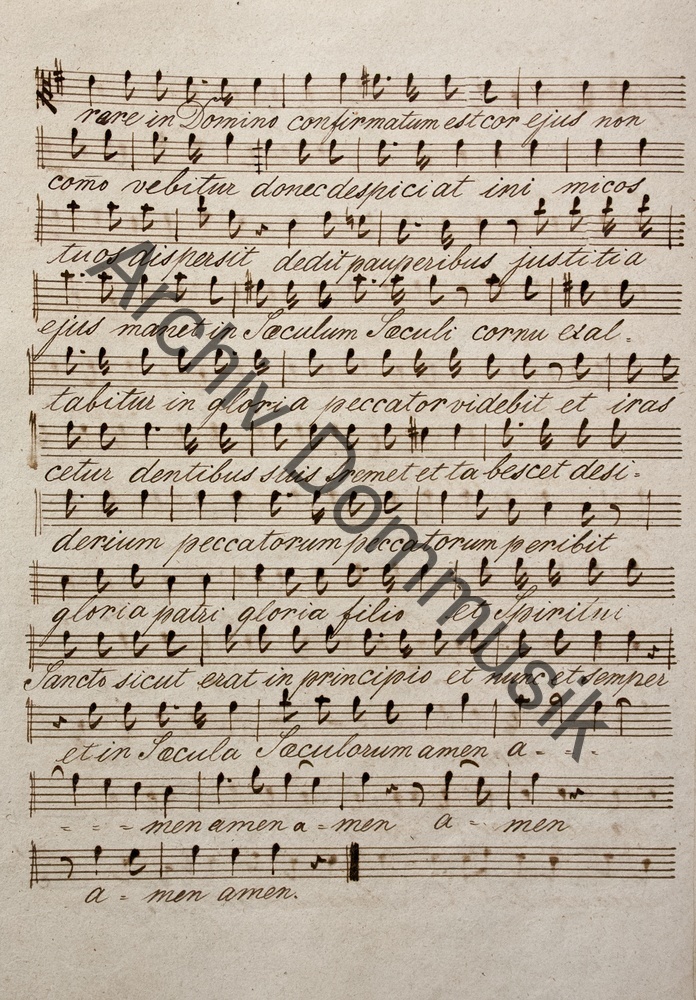 rare in Domino confirmatum est cor ejus non
com̄o vebitur donec despiciat ini micos
tuos dispersit dedit pauperibus justitia
ejus manet in Sæculum Sæculi cornu exal-
tabitur in gloria peccator videbit et iras
cetur dentibus suis fremet et ta bescet desi-
derium peccatorum peccatorum peribit
gloria patri gloria filio et Spiritui
Sancto sicut erat in principio et nunc et semper
et in Sæcula Sæculorum amen a - - -
- - - men amen a - men a - men
a - men amen.
Archiv Dommusik